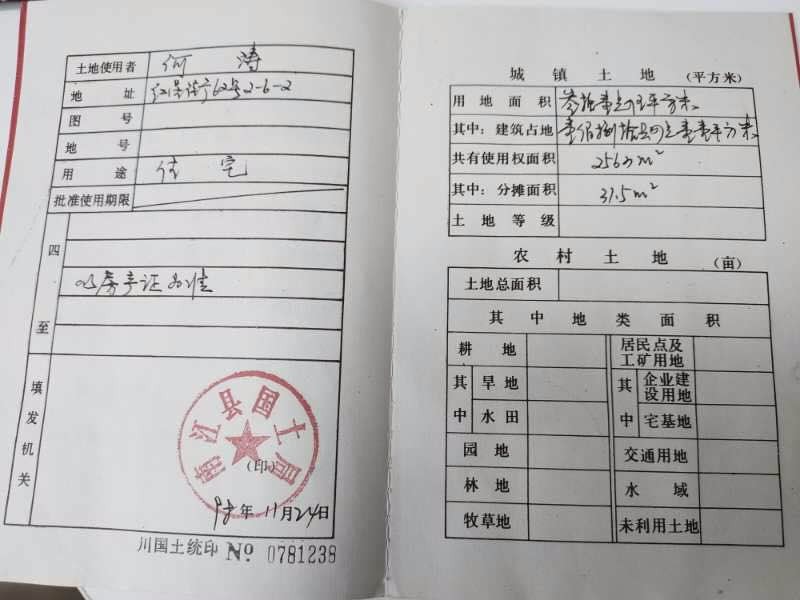 土地使用者 何涛
地址 62号2-6-2
图号
地号
用途 住宅
批准使用期限
四至
以房产证为准
填发机关
南江县国土局
(印)
98年11月24日
川国土统印 № 0781238
城镇土地 (平方米)
用地面积 叁拾壹点伍平方米
其中：建筑占地 平方米
共有使用权面积
其中：分摊面积 31.5m²
土地等级
农村土地 (亩)
土地总面积
其中地类面积
耕地 居民点及工矿用地
其中 旱地 其中 企业建设用地
水田 宅基地
园地 交通用地
林地 水域
牧草地 未利用土地